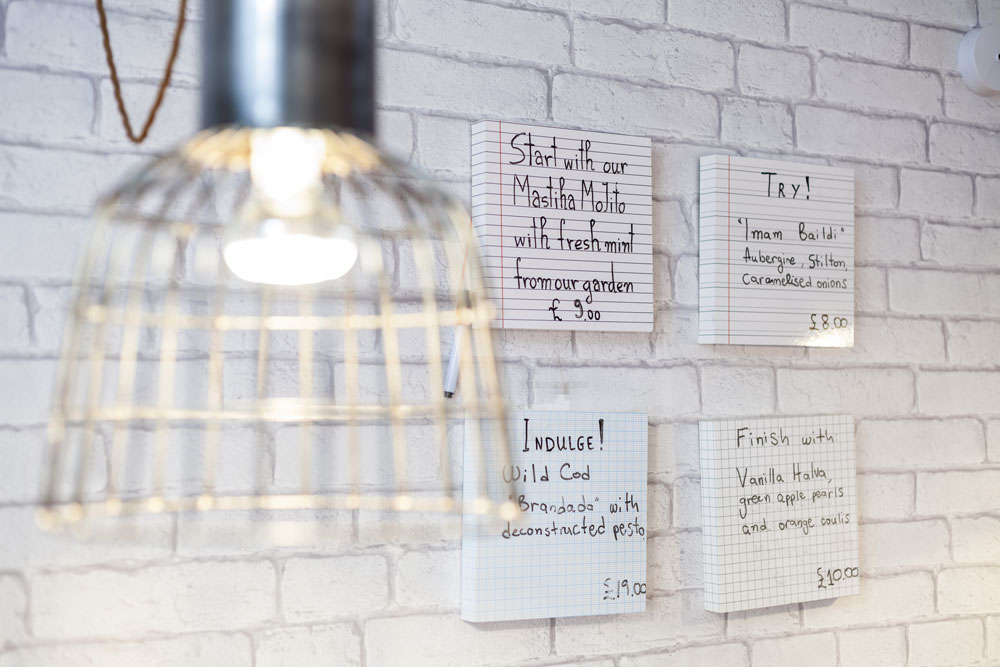 Start with our
Mastiha Mojito
with fresh mint
from our garden
£ 9.00
TRY!
"Imam Baildi"
Aubergine, Stilton,
Caramelised onions
£8.00
INDULGE!
Wild Cod
"Brandada" with
deconstructed pesto
£19.00
Finish with
Vanilla Halva,
green apple pearls
and orange coulis
£10.00